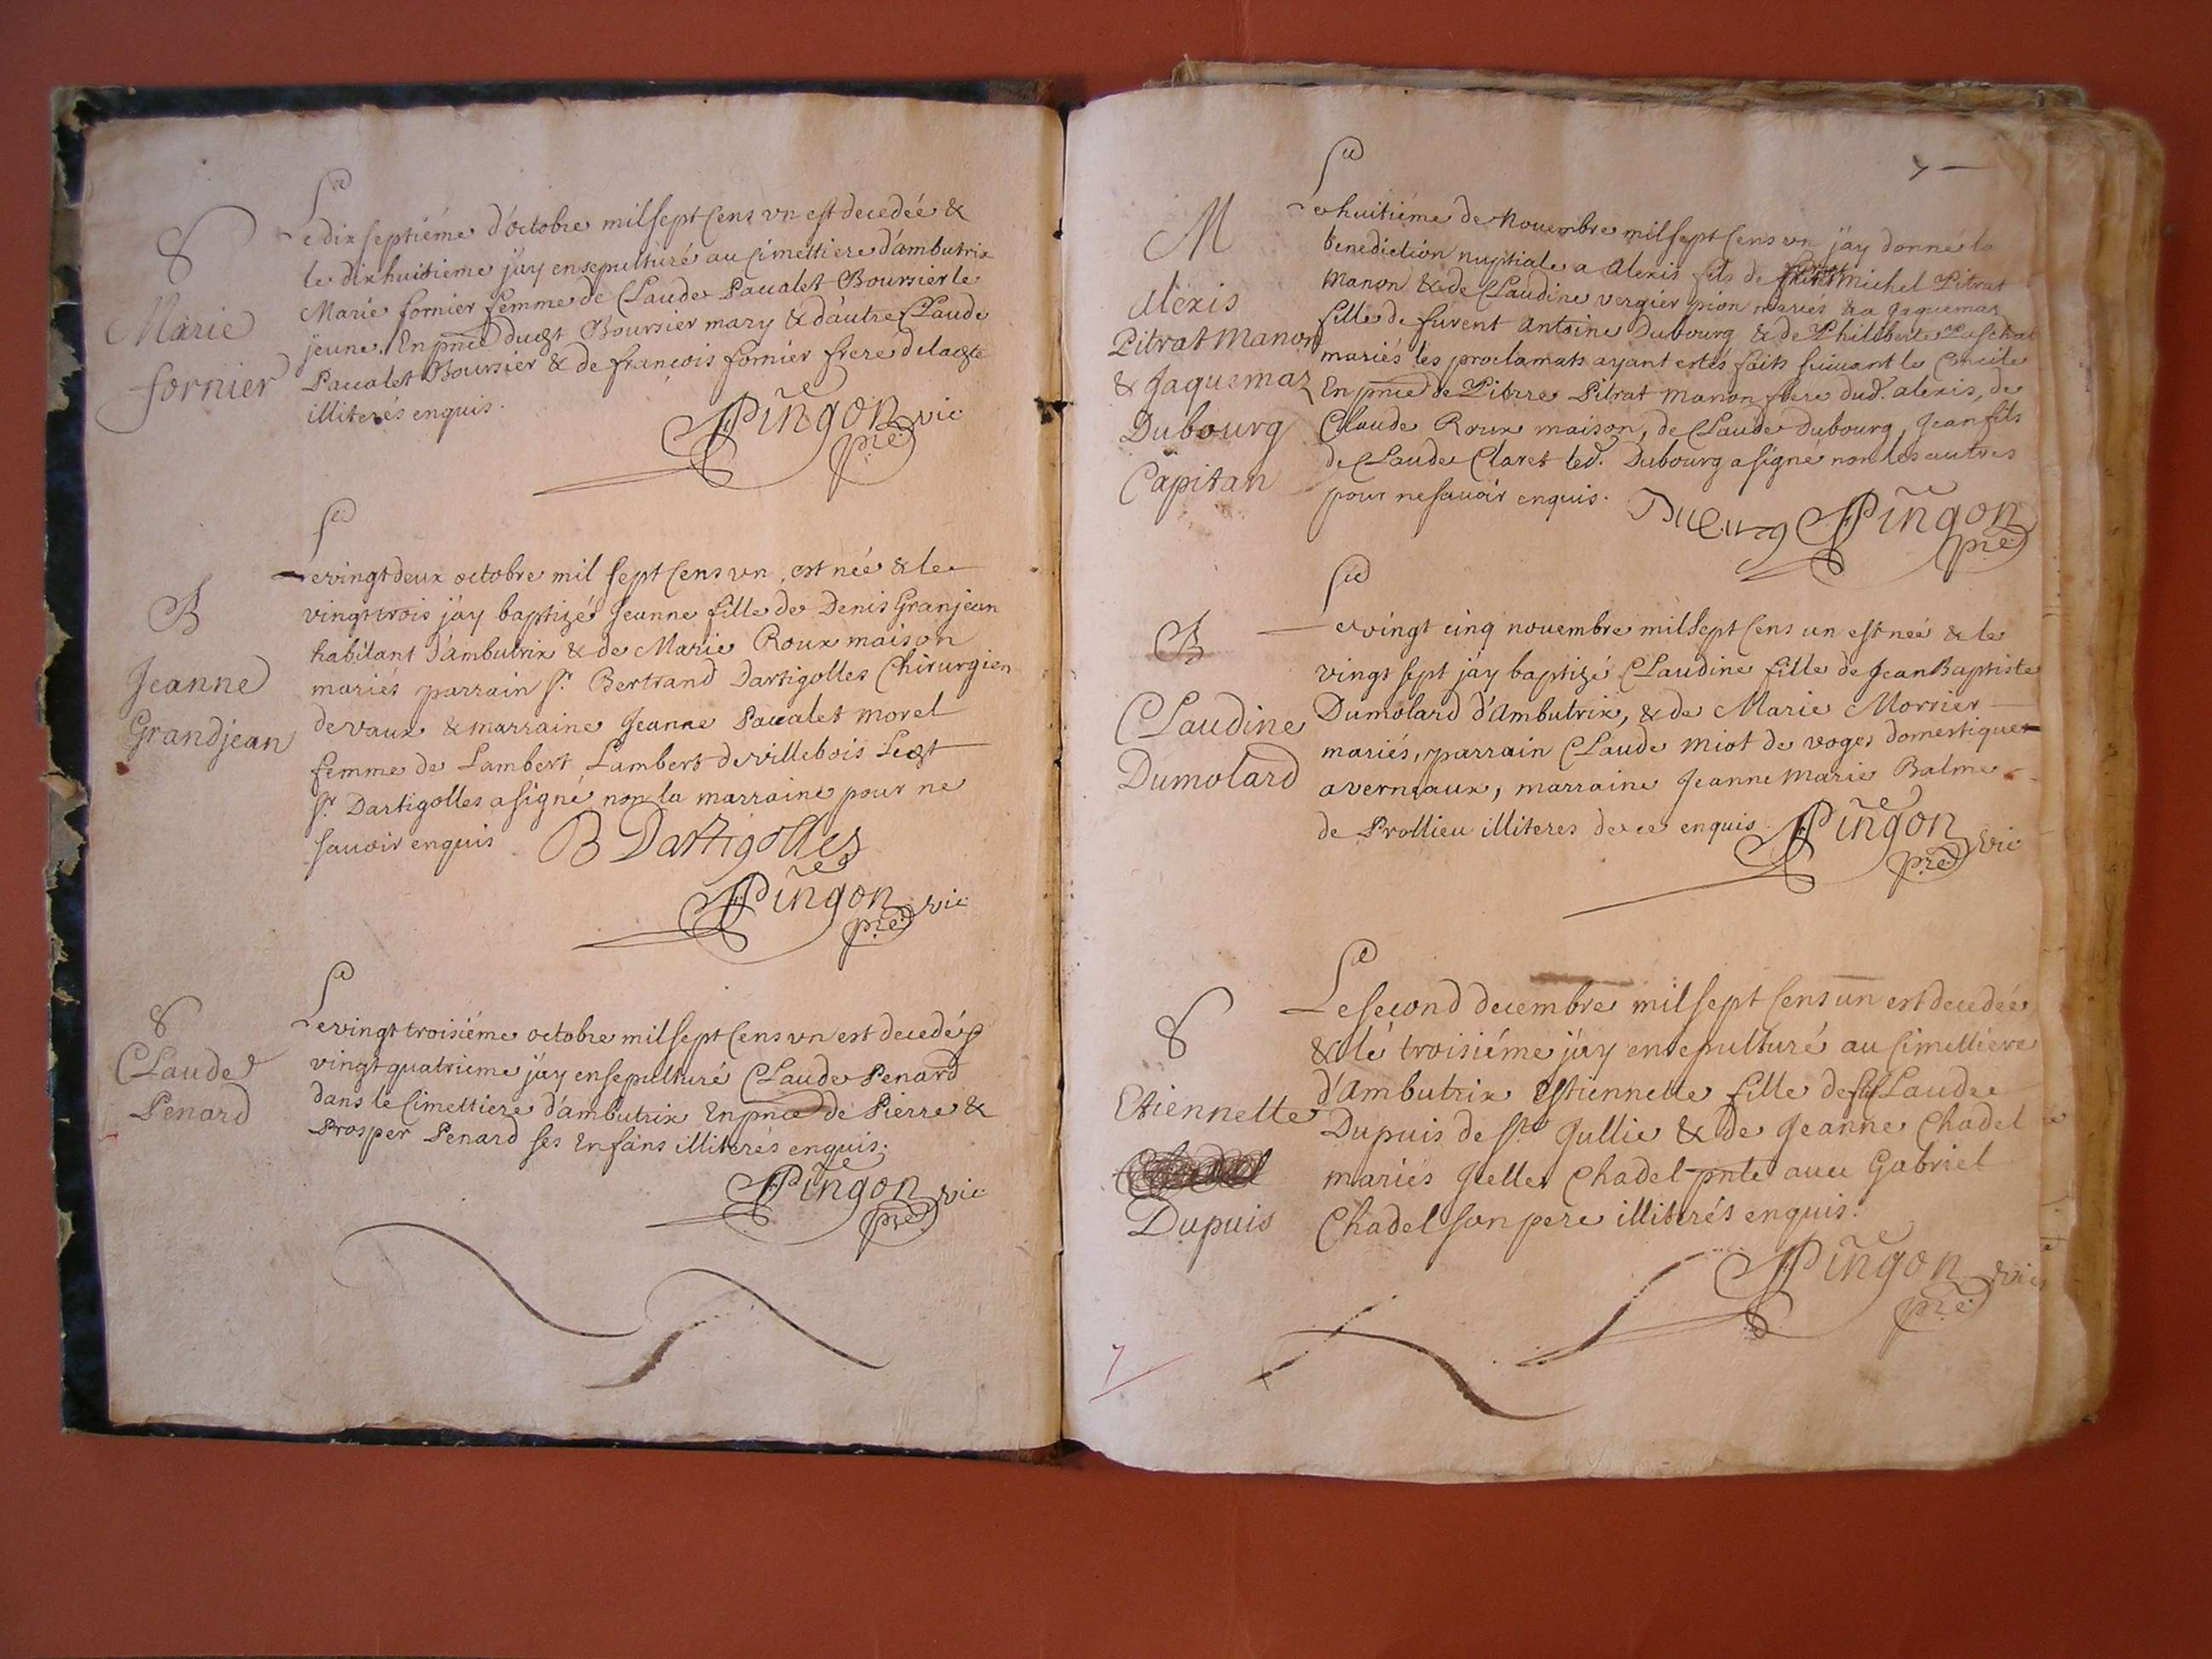 S
Marie
fornier
Le dix septiéme d'octobre mil sept Cens vn est decedeé &
le dixhuitieme j'ay ensepulturé au Cimettiere d'ambutrix
Marie fornier femme de Claude Paualet Boursier le
jeune. En pnce dudt Boursier mary & dáutre Claude
Paualet Boursier & de françois fornier frere de lade
illiterés enquis.
Pingon vic
pre
B
Jeanne
Grandjean
Le vingt deux octobre mil sept Cens vn est neé & le
vingt trois j'ay baptizé Jeanne fille de Denis Granjean
habitant d'ambutrix & de Marie Roux maison
mariés parrain Sr. Bertrand Dartigolles Chirurgien
de vaux & marraine Jeanne Paualet morel
femme de Lambert Lambert de villebois Ledt
Sr. Dartigolles a signé non la marraine pour ne
sauoir enquis B Dartigolles
Pingon vic
pre
S
Claude
Penard
Le vingt troisiéme octobre mil sept Cens vn est decedé &
vingt quatrieme j'ay ensepulturé Claude Penard
dans le Cimettiere d'ambutrix En pnce de Pierre &
Prosper Penard ses Enfans illiterés enquis.
Pingon vic
pre
7
M
Alexis
Pitrat Manon
& Jaquemaz
Dubourg
Capitan
Le huitiéme de Nouembre mil sept Cens vn j'ay donné la
benediction nuptiale a Alexis fils de Michel Pitrat
Manon & de Claudine vergier pion mariés & a Jaquemaz
fille de furent Antoine Dubourg & de Philiberte Paschal
mariés les proclamats ayant estés faits suiuant le Concile
En pnce de Pierre Pitrat Manon frere dud. alexis, de
Claude Roux maison, de Claude Dubourg, Jean fils
de Claude Claret led. Dubourg a signé non les autres
pour ne sauoir enquis. Duburg Pingon
pre
B
Claudine
Dumolard
Le vingt cinq nouembre mil sept Cens un est neé & le
vingt sept j'ay baptizé Claudine fille de Jean Baptiste
Dumolard d'Ambutrix, & de Marie Morrier
mariés, parrain Claude Miot de voges domestique
a verneaux, marraine Jeanne Marie Balme
de Prollieu illiteres de ce enquis. Pingon vic
pre
S
Etiennette
Dupuis
Le second decembre mil sept Cens un est decedeé
& le troisiéme j'ay ensepulturé au Cimettiere
d'Ambutrix Estiennette fille de Claude
Dupuis de St Jullie & de Jeanne Chadel
mariés Jcelle Chadel pnte auec Gabriel
Chadel son pere illiterés enquis.
Pingon vic
pre
7